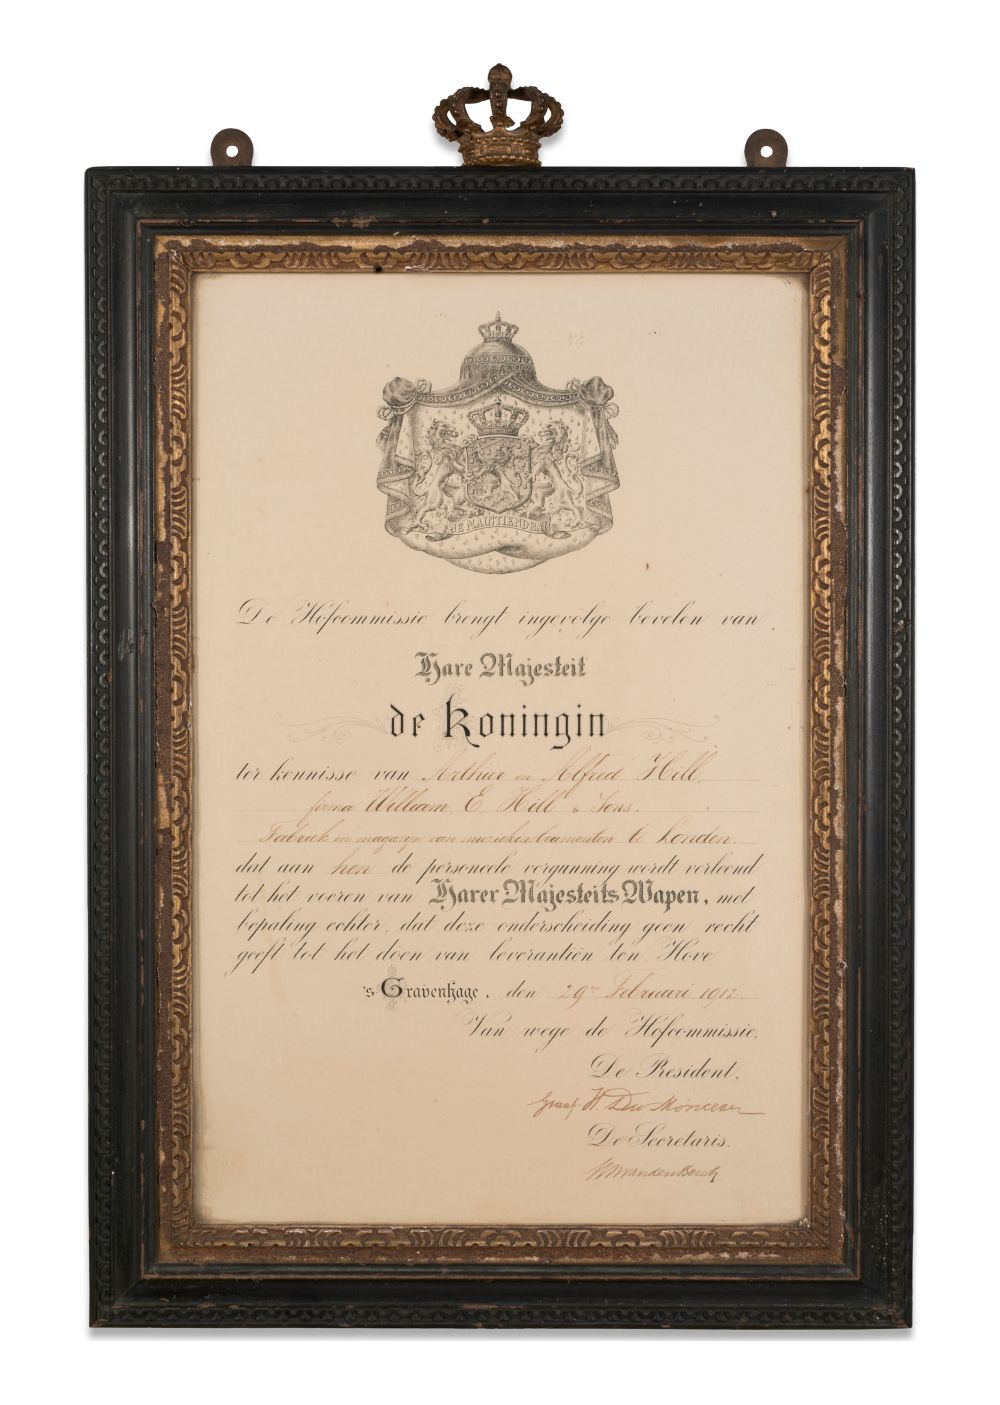 JE MAINTIENDRAI
De Hofcommissie brengt ingevolge bevelen van
Hare Majesteit
de Koningin
ter kennisse van Arthur en Alfred Hill,
firma William E. Hill & Sons.
Fabriek en magazijn van muziekinstrumenten te Londen.
dat aan hen de personeele vergunning wordt verleend
tot het voeren van Harer Majesteits Wapen, met
bepaling echter, dat deze onderscheiding geen recht
geeft tot het doen van leverantiën ten Hove
's Gravenhage, den 29en Februari 1912.
Van wege de Hofcommissie,
De President,
Graaf
De Secretaris.